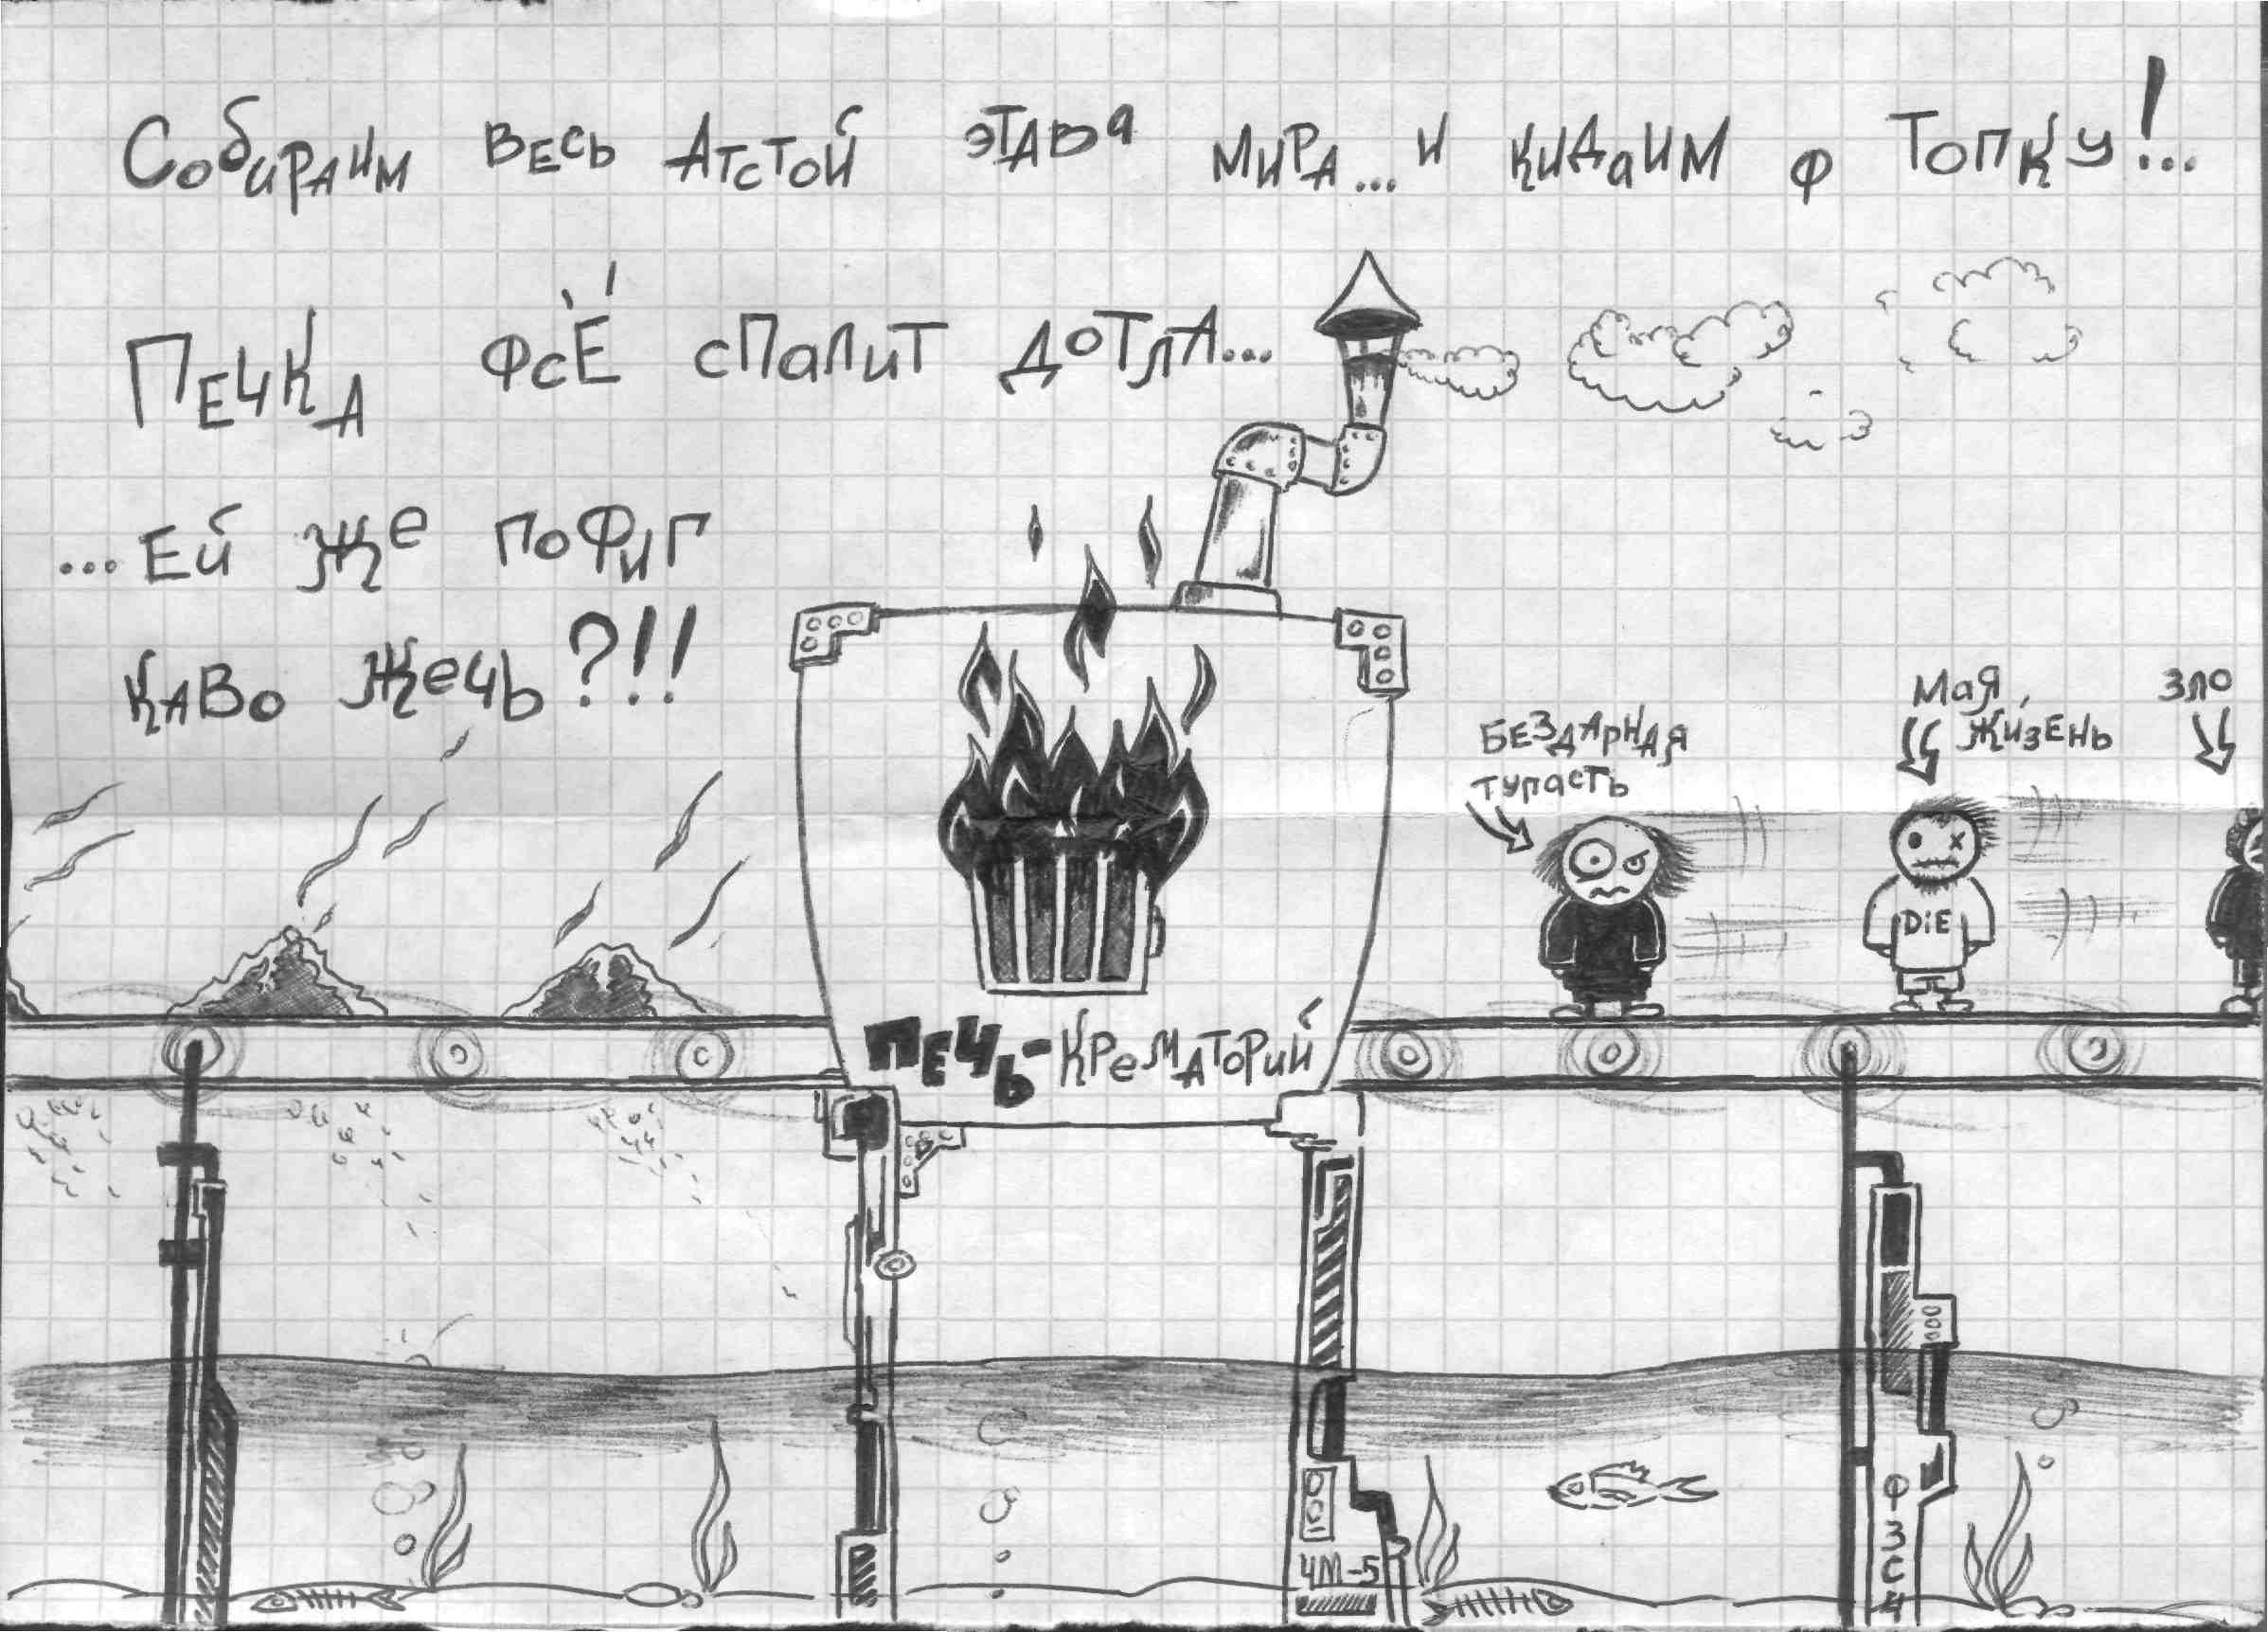 Собираим весь Атстой этава мира... и кидаим ф топку!...
Печка фсЁ спалит дотла...
...Ей же пофиг
каво жечь?!!
Бездарная
тупасть
Мая
жизень
зло
DiE
Печь-крематорий
ЧМ-5
ФЗСЧ